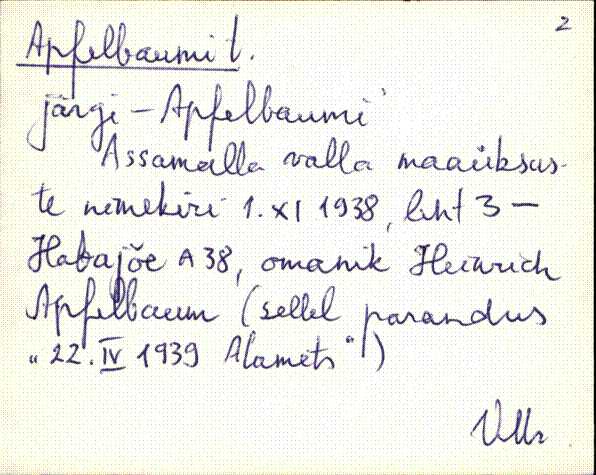 2
Apfelbaumi t.
järgi – Apfelbaumi
Assamalla valla maaüksus-
te nimekiri 1. XI 1938, leht 3 –
Habajõe A 38, omanik Heinrich
Apfelbaum (sellel parandus
„22. IV 1939 Alamets")